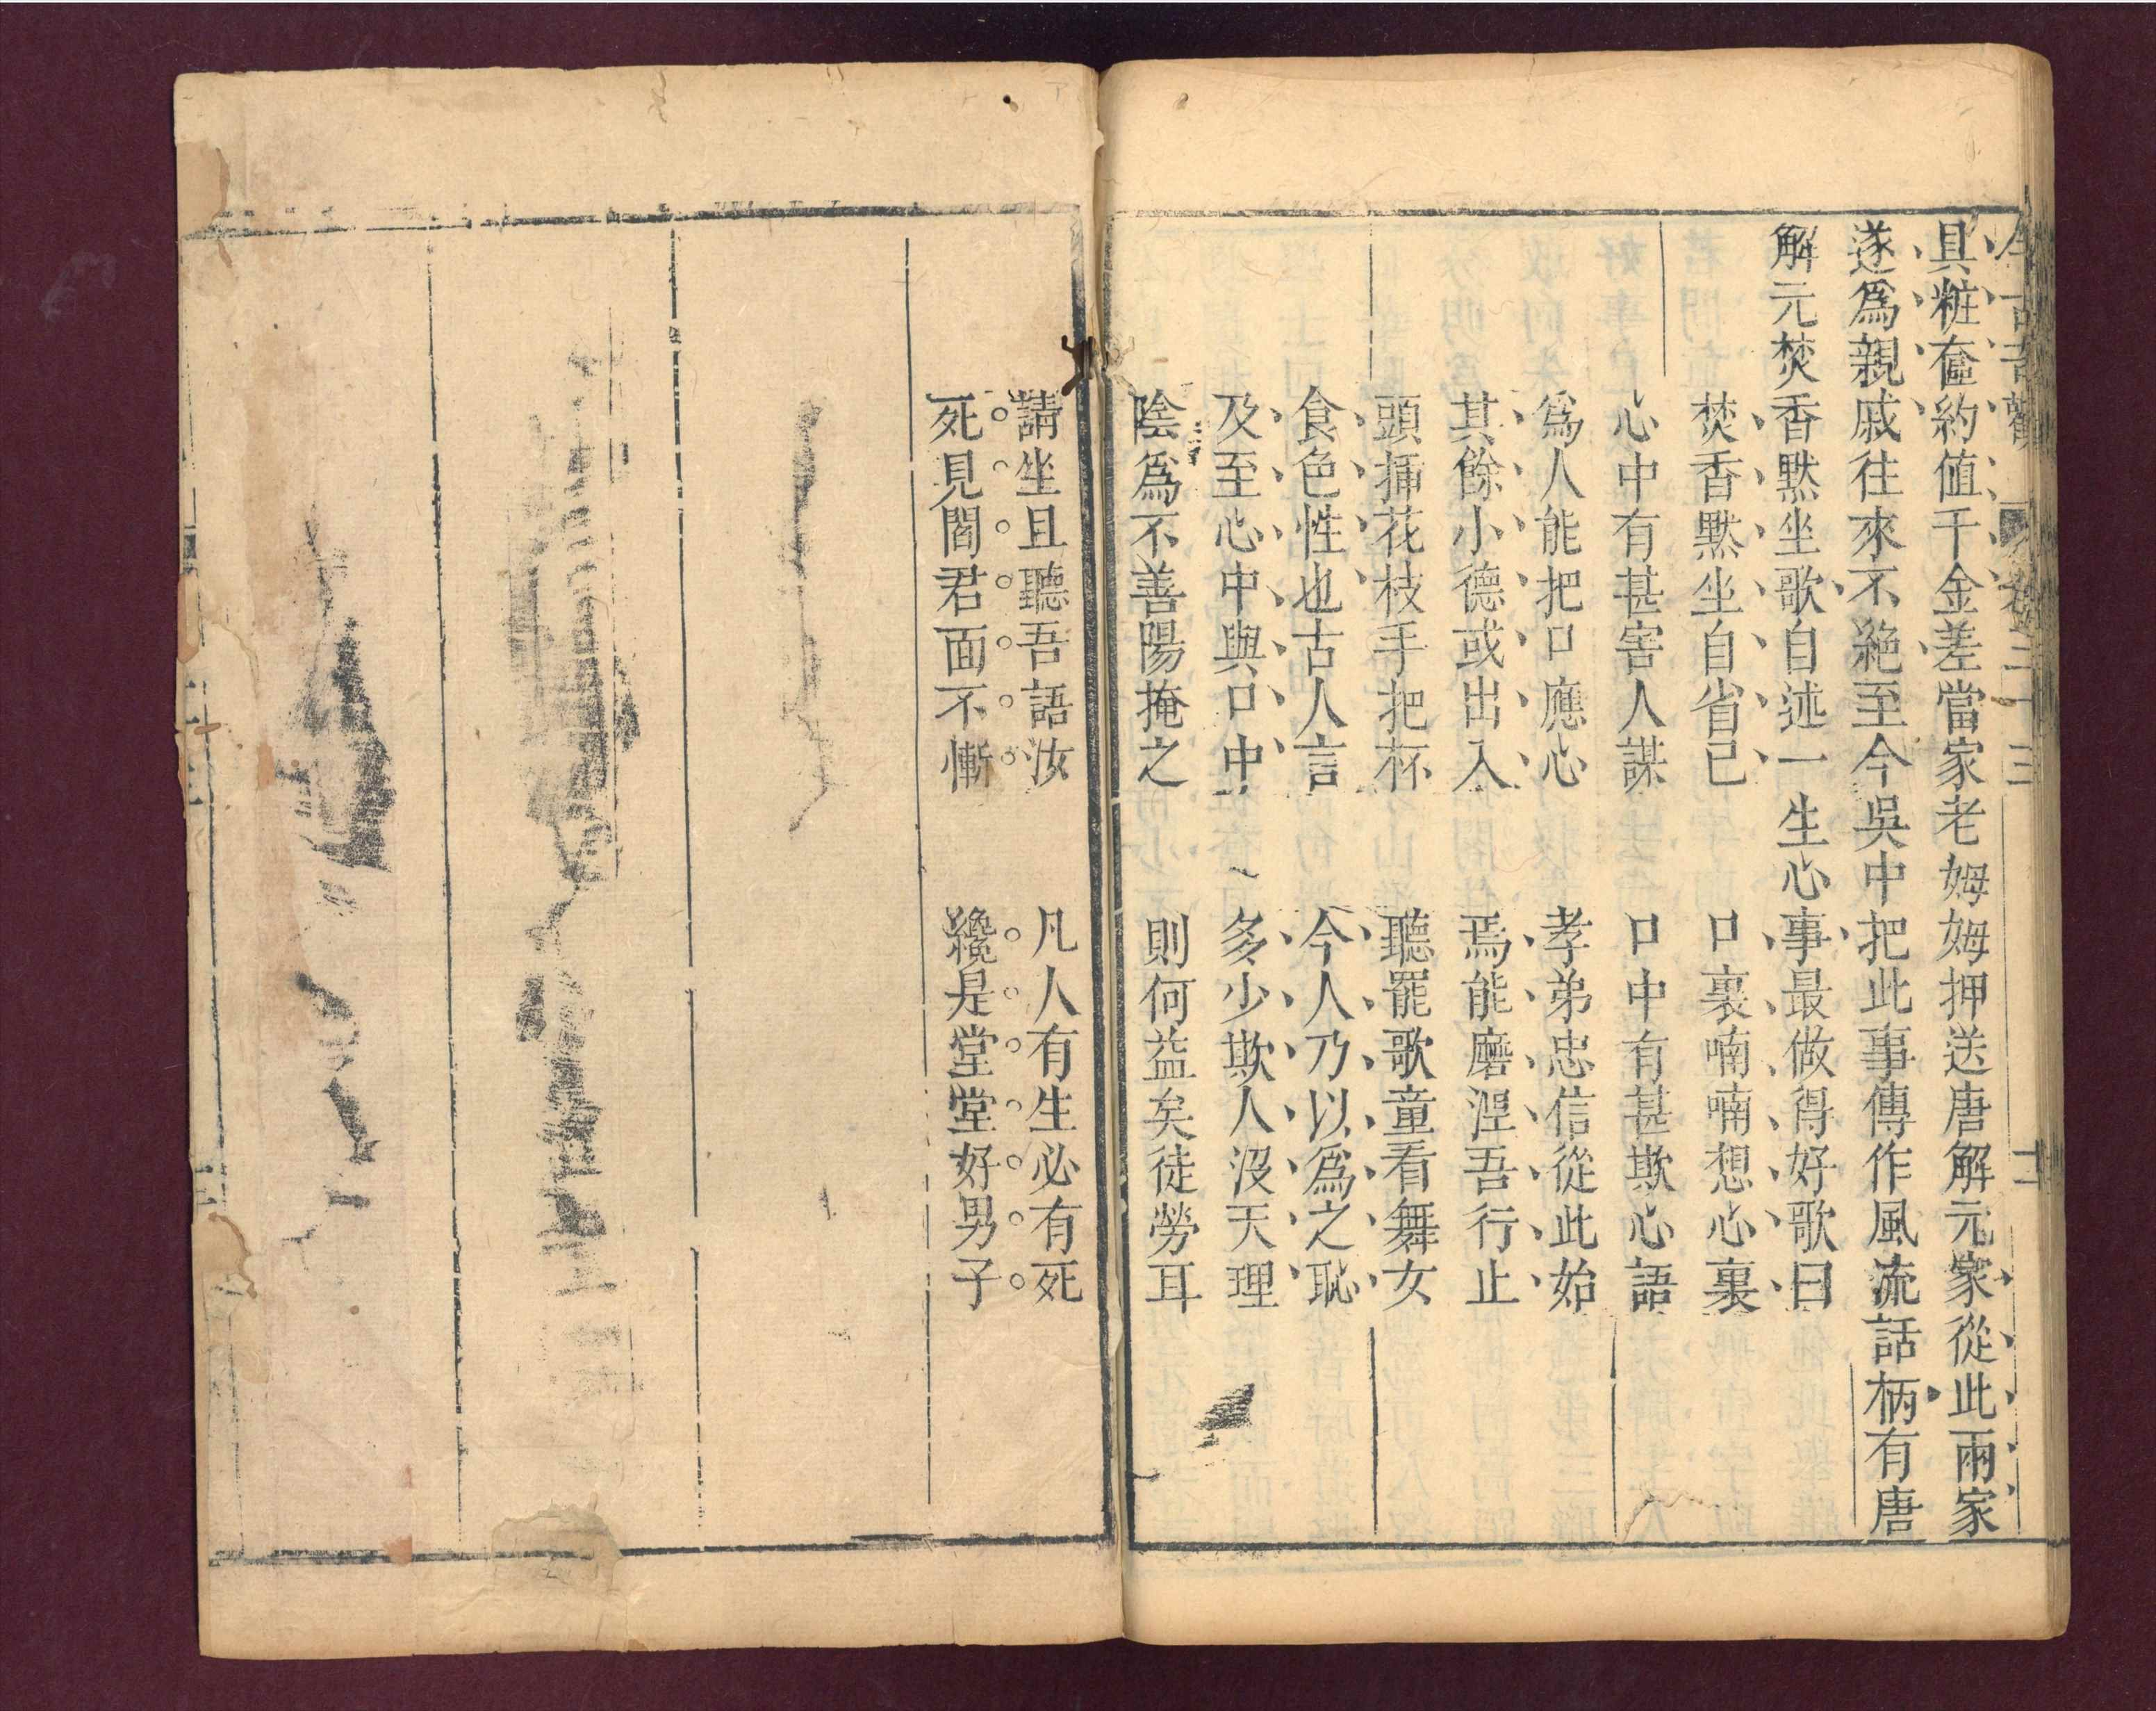 今古奇觀 卷三十三 十二
具粧奩約值千金差當家老姆姆押送唐解元家從此兩家
遂爲親戚往來不絶至今吳中把此事傳作風流話柄有唐
解元焚香默坐歌自述一生心事最做得好歌曰
焚香默坐自省己 口裏喃喃想心裏
心中有甚害人謀 口中有甚欺心語
爲人能把口應心 孝弟忠信從此始
其餘小德或出入 焉能磨涅吾行止
頭揷花枝手把杯 聽罷歌童看舞女
食色性也古人言 今人乃以爲之恥
及至心中與口中 多少欺人没天理
陰爲不善陽掩之 則何益矣徒勞耳
請坐且聽吾語汝 凡人有生必有死
死見閻君面不慚 纔是堂堂好男子